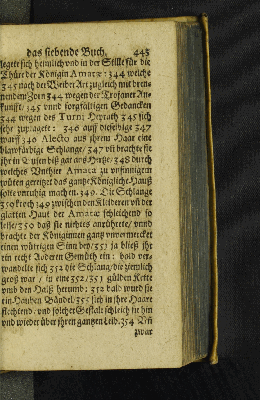 das siebende Buch. 443
legete sich heimlich vnd in der Stille für die
Thüre der Königin Amatæ: 344 welche
345 nach der Weiber Art zugleich mit bren-
nendem Zorn 344 wegen der Trojaner An-
kunfft/ 345 vnnd sorgfältigen Gedancken
344 wegen des Turni Heyrath 345 sich
sehr zuplagete: 346 auff diese/ 347
warff 340 Alecto auß ihrem Haar eine
blawfärbige Schlange/ 347 vñ brachte sie
ihr in Busen biß gar ans Hertze/ 348 durch
welches Vnthier Amata zu vnsinnigem
wüten gereitzet das gantze Königliche Hauß
solte vnruhig machen. 349. Die Schlange
350 kroch 349 zwischen den Kleidern vñ der
glatten Haut der Amatæ schleichend so
leise/ 350 daß sie nichtes anrührete/ vnnd
brachte der Königinnen gantz vnvermercket
einen wütrigen Sinn bey/ 351 ja bließ ihr
ein recht Natteren Gemüth ein: bald ver-
wandelte sich 352 die Schlang/ die ziemlich
groß war/ in eine 352/ 351 gülden Kette
vmb den Halß herumb: 352 bald wurd sie
ein Hauben Bändel/ 353 sich in ihre Haare
flechtend/ vnd solcher Gestalt schleich sie hin
vnd wieder über ihren gantzen Leib. 354 Vñ
zwar